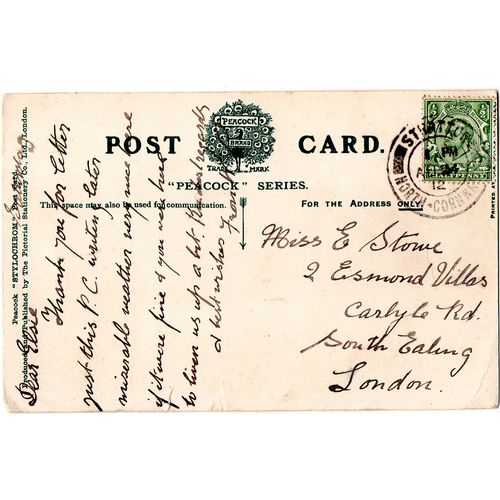 POST CARD.
PEACOCK
BRAND
TRADE MARK
"PEACOCK" SERIES.
This space may also be used for communication.
FOR THE ADDRESS ONLY.
Peacock "STYLOCHROM" Post Card.
Produced and Published by The Pictorial Stationery Co., Ltd., London.
PRINTED
STRATTON
PM
12
NORTH-CORNWALL
Dear Elsie
Thank you for letter
just this P.C. writing later
miserable weather very much more
if it were fine & you were here
to liven us up a bit
& best wishes
From
Miss E Stowe
2 Esmond Villas
Carlyle Rd.
South Ealing
London.